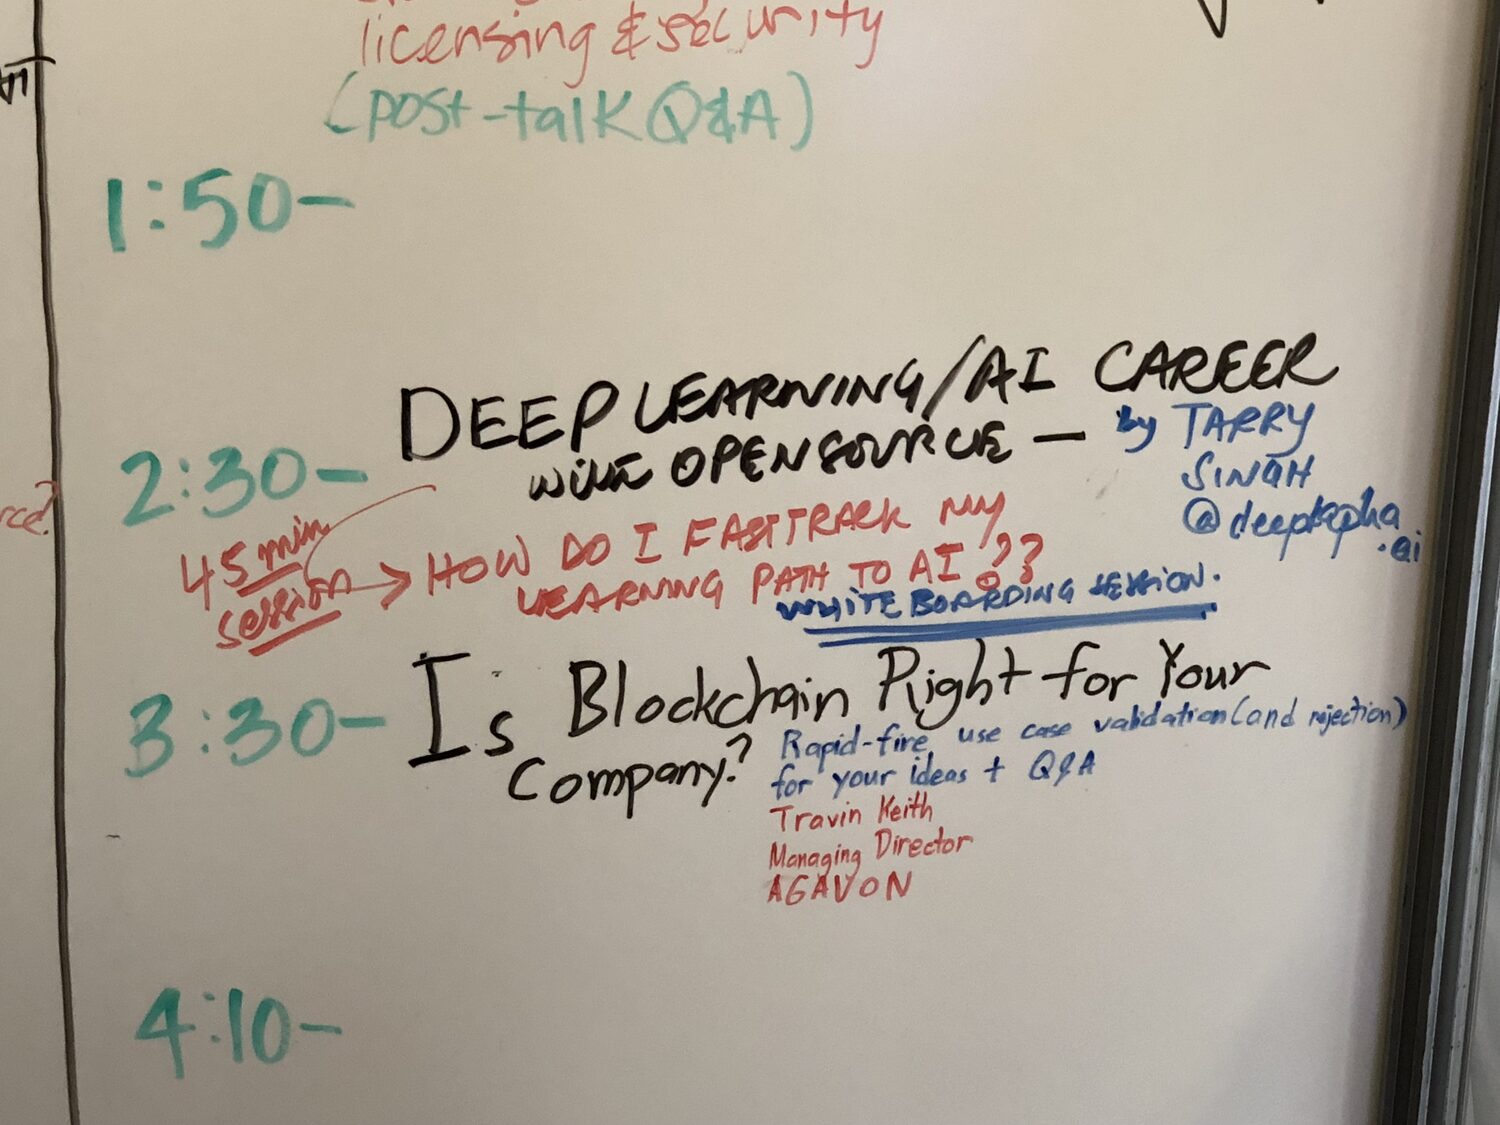 licensing & security
(post-talk Q&A)
1:50-
2:30-
DEEP LEARNING/AI CAREER
with OPENSOURCE — by TARRY
SINGH
@deepkapha
.ai
45 min
session → HOW DO I FASTTRACK MY
LEARNING PATH TO AI ??
WHITEBOARDING SESSION.
3:30-
Is Blockchain Right for Your
Company?
Rapid-fire use case validation (and rejection)
for your ideas + Q&A
Travin Keith
Managing Director
AGAVON
4:10-